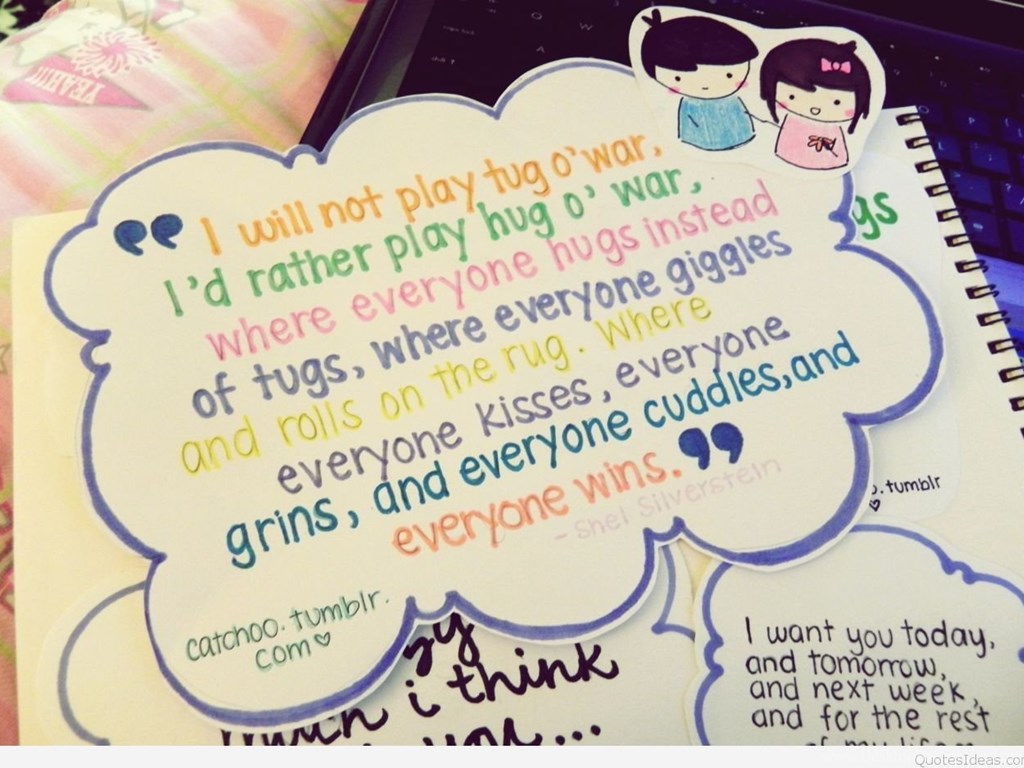 YEAH!!!
“ I will not play tug o' war,
I'd rather play hug o' war,
where everyone hugs instead
of tugs, where everyone giggles
and rolls on the rug. Where
everyone kisses, everyone
grins, and everyone cuddles, and
everyone wins.”
- Shel Silverstein
catchoo.tumblr.
com♡
gs
.tumblr
♡
i think
...
I want you today,
and tomorrow,
and next week,
and for the rest
of my life
QuotesIdeas.com